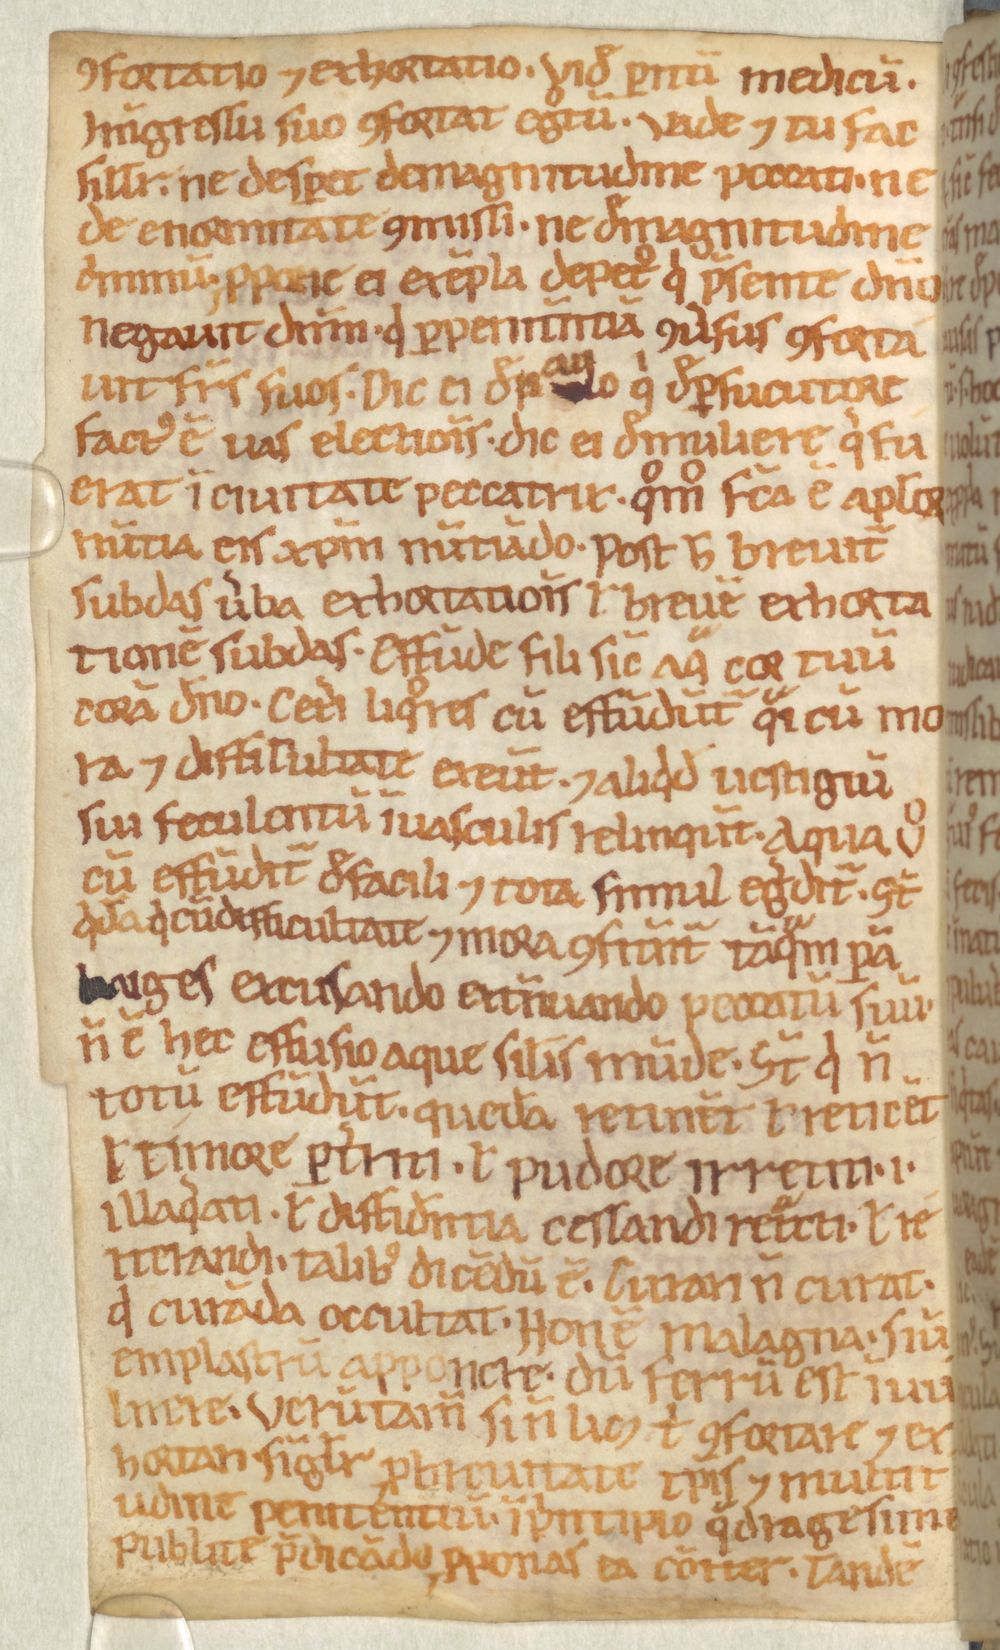 ꝯfortatio ⁊ exhortatio. Vid̛ ꝑitū medicū.
In īgressu suo ꝯfortat eg̊tū. Vade ⁊ tu fac
silr̄. ne desꝑet de magnitudine peccati. ne
de enormitate ꝯmissi. ne d̛ magnitudine
criminū. ꝓpone ei exēpla de petº q̇ p̄sente dn̄o
negauit dn̄m. q̇ ꝑ penitn̄tiā ꝯūsus ꝯforta
uit fr̄s suos. Dic ei d̛ paulo q̇ d̛ ꝑsecutore
factꝰ ē uas electiōis. dic ei d̛ muliere q̄ fu
erat ī ciuitate peccatrix. qºmº fc̄a ē apl̄oꝝ
nūtia eis xp̄m nūtiādo. Post h̄ breuit̄
subdas ūba exhortatiōis ł breuē exhorta
tionē subdas. Effūde fili sic̄ aq̄ cor tuū
corā dn̄o. Cet̄i liqºres cū effūdūt̄ q̄i cū mo
ra ⁊ difficultate exeūt. ⁊ aliqd̄ uestigiū
sui feculentū ī uasculis relinqūt. Aqua ūº
cū effūdit̄ d̛ facili ⁊ tota simul egd̄it̄. St̄
qd̄a q̇ cū difficultate ⁊ mora ꝯfitēt̄ tāq̄m ꝑ a
nbages excusando extn̄uando peccatū suū.
n̄ ē hec effusio aque sil̄is mūde. St̄ q̇ n̄
totū effūdūt. quedā retinēt ł reticēt
ł timore ꝑt̄riti. ł pudore irretiti .i.
illaq̄ati. ł diffidn̄tia cessandi reiecti. ł re
iterandi. talibꝰ dicēdū ē. Curari n̄ curat.
q̇ curāda occultat. Hon ē malagna. siū
emplastrū apponere. dū ferrū est ī uul
nere. Verūtam̄ si n̄ licꝫ t̄ ꝯfortare ⁊ ex
hortari siglr̄ ꝑ breuitate tp̄is ⁊ multit
udine penitentiū. ī p̄ncipio q̄dragesime
publice p̄dicādo, ꝓponas ea cōit̄er. Tandē